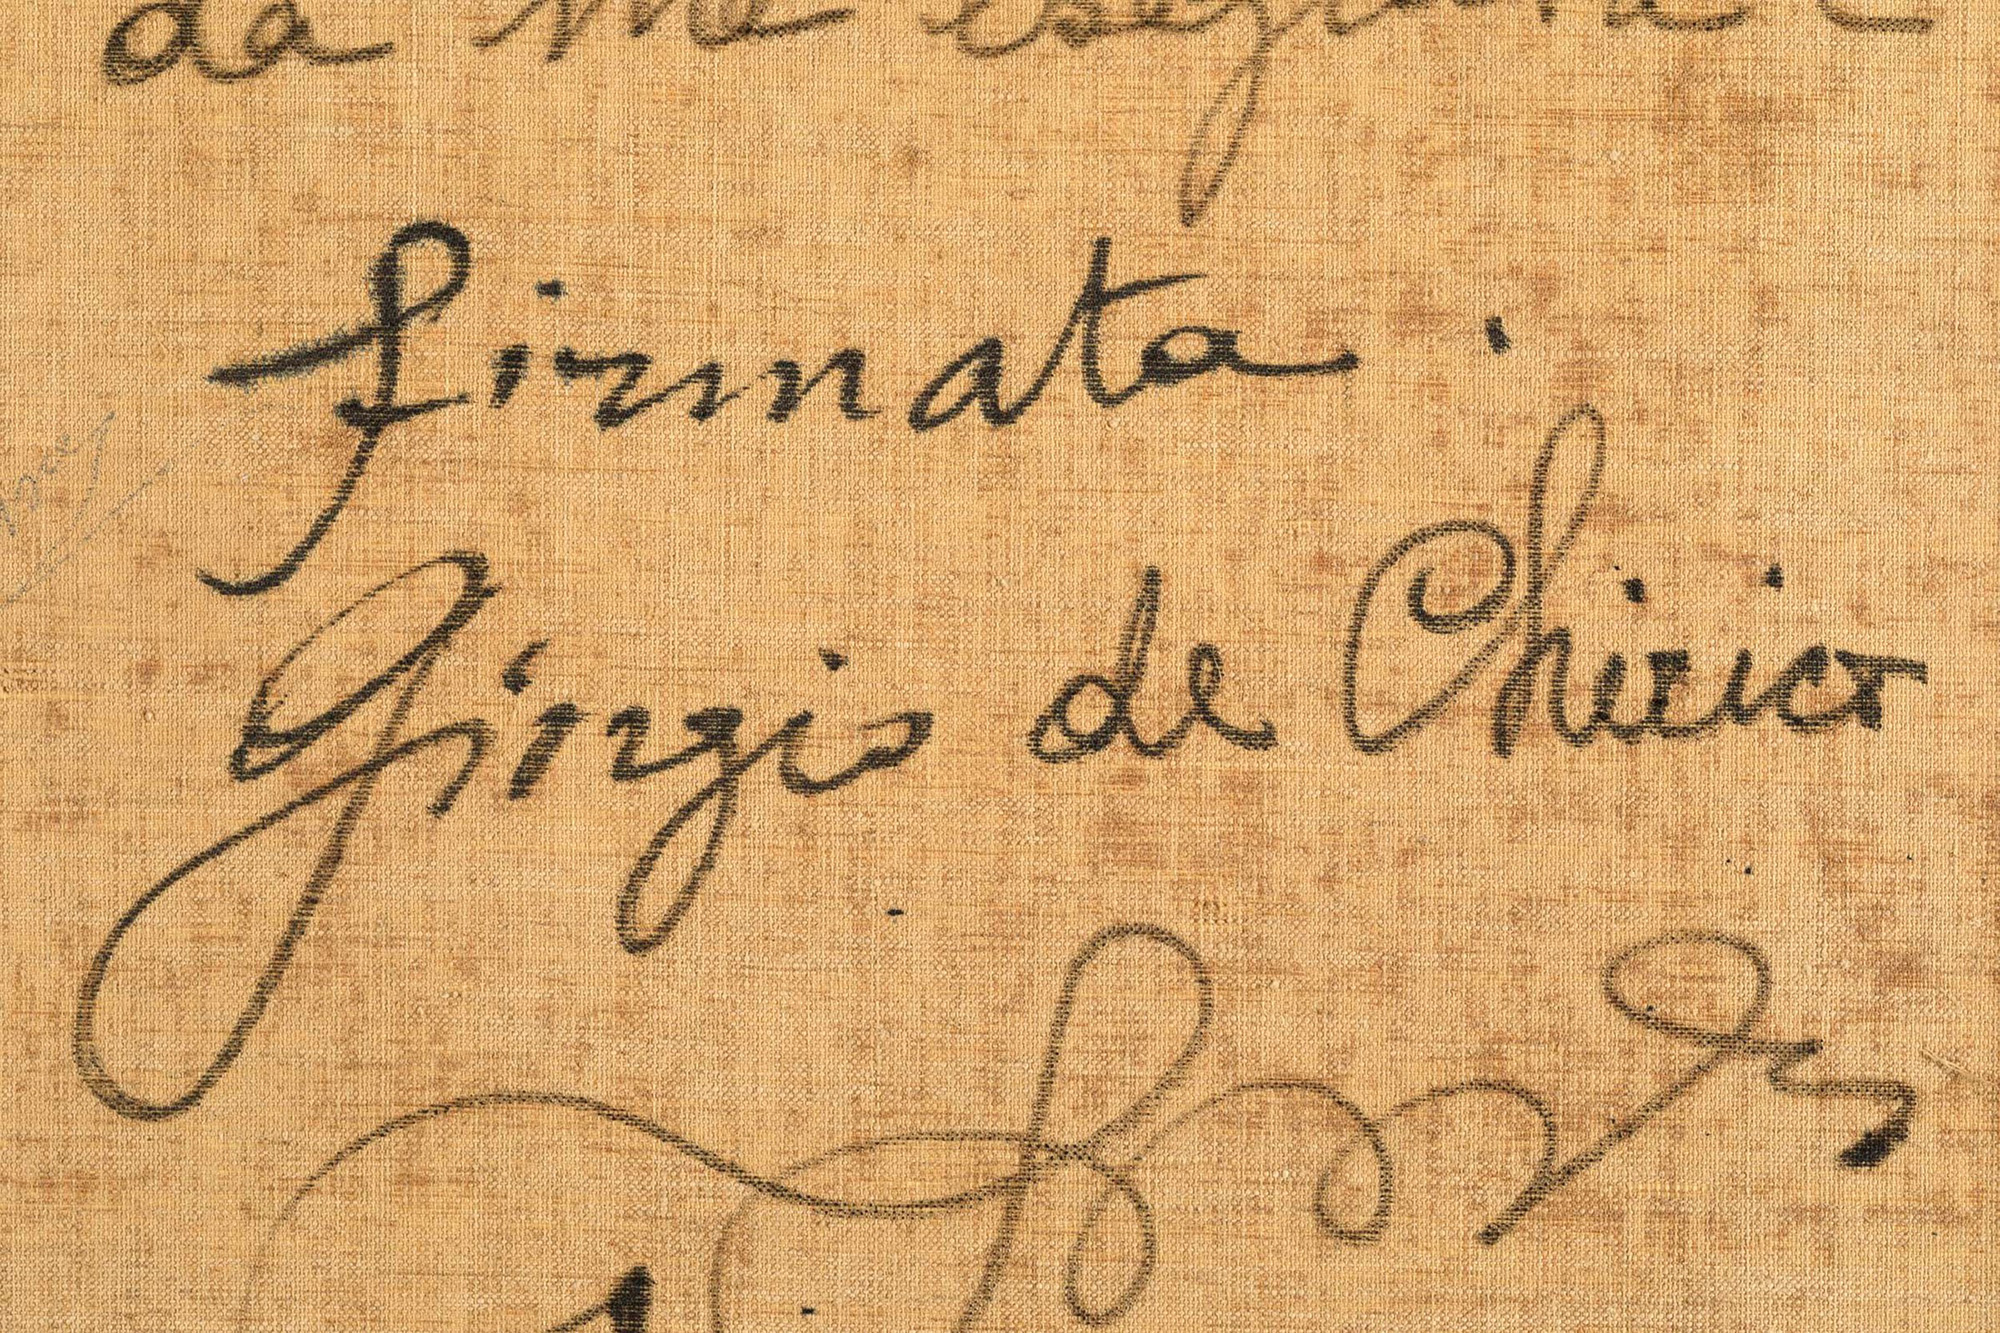 da me eseguita e
firmata.
Giorgio de Chirico